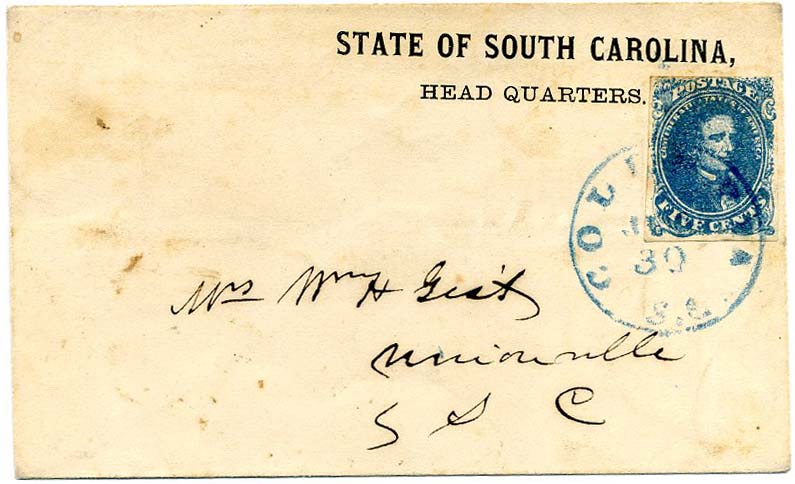 STATE OF SOUTH CAROLINA,
HEAD QUARTERS.
POSTAGE
CONFEDERATE STATES OF AMERICA
FIVE CENTS
COL
30
S.C.
Mrs Wm H Gist
Unionville
S C